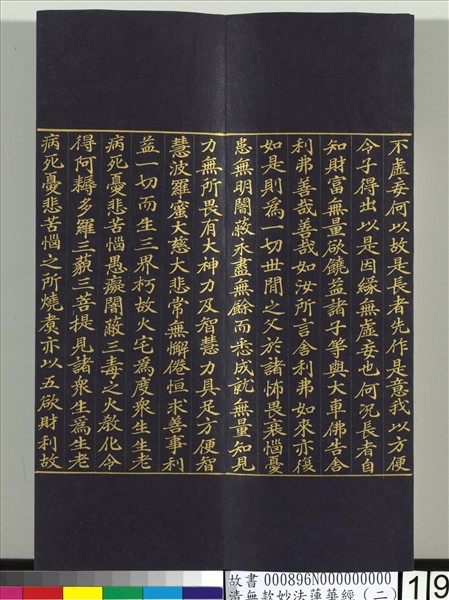 不虛妄何以故是長者先作是意我以方便
令子得出以是因緣無虛妄也何況長者自
知財富無量欲饒益諸子等與大車佛告舍
利弗善哉善哉如汝所言舍利弗如來亦復
如是則為一切世間之父於諸怖畏衰惱憂
患無明闇蔽永盡無餘而悉成就無量知見
力無所畏有大神力及智慧力具足方便智
慧波羅蜜大慈大悲常無懈倦恒求善事利
益一切而生三界朽故火宅為度眾生生老
病死憂悲苦惱愚癡闇蔽三毒之火教化令
得阿耨多羅三藐三菩提見諸眾生為生老
病死憂悲苦惱之所燒煑亦以五欲財利故
故書 000896N000000000
清無款妙法蓮華經 (二)
19